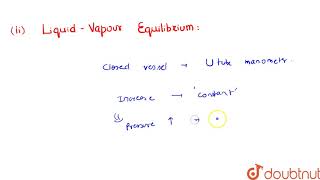 (ii) Liquid - Vapour Equilibrium :
Closed vessel → U tube manometer.
Increase → 'constant'
(i) Pressure ↑ →
doubtnut